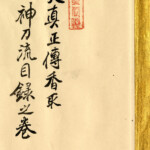 天真正傳香取
神刀流目錄之巻